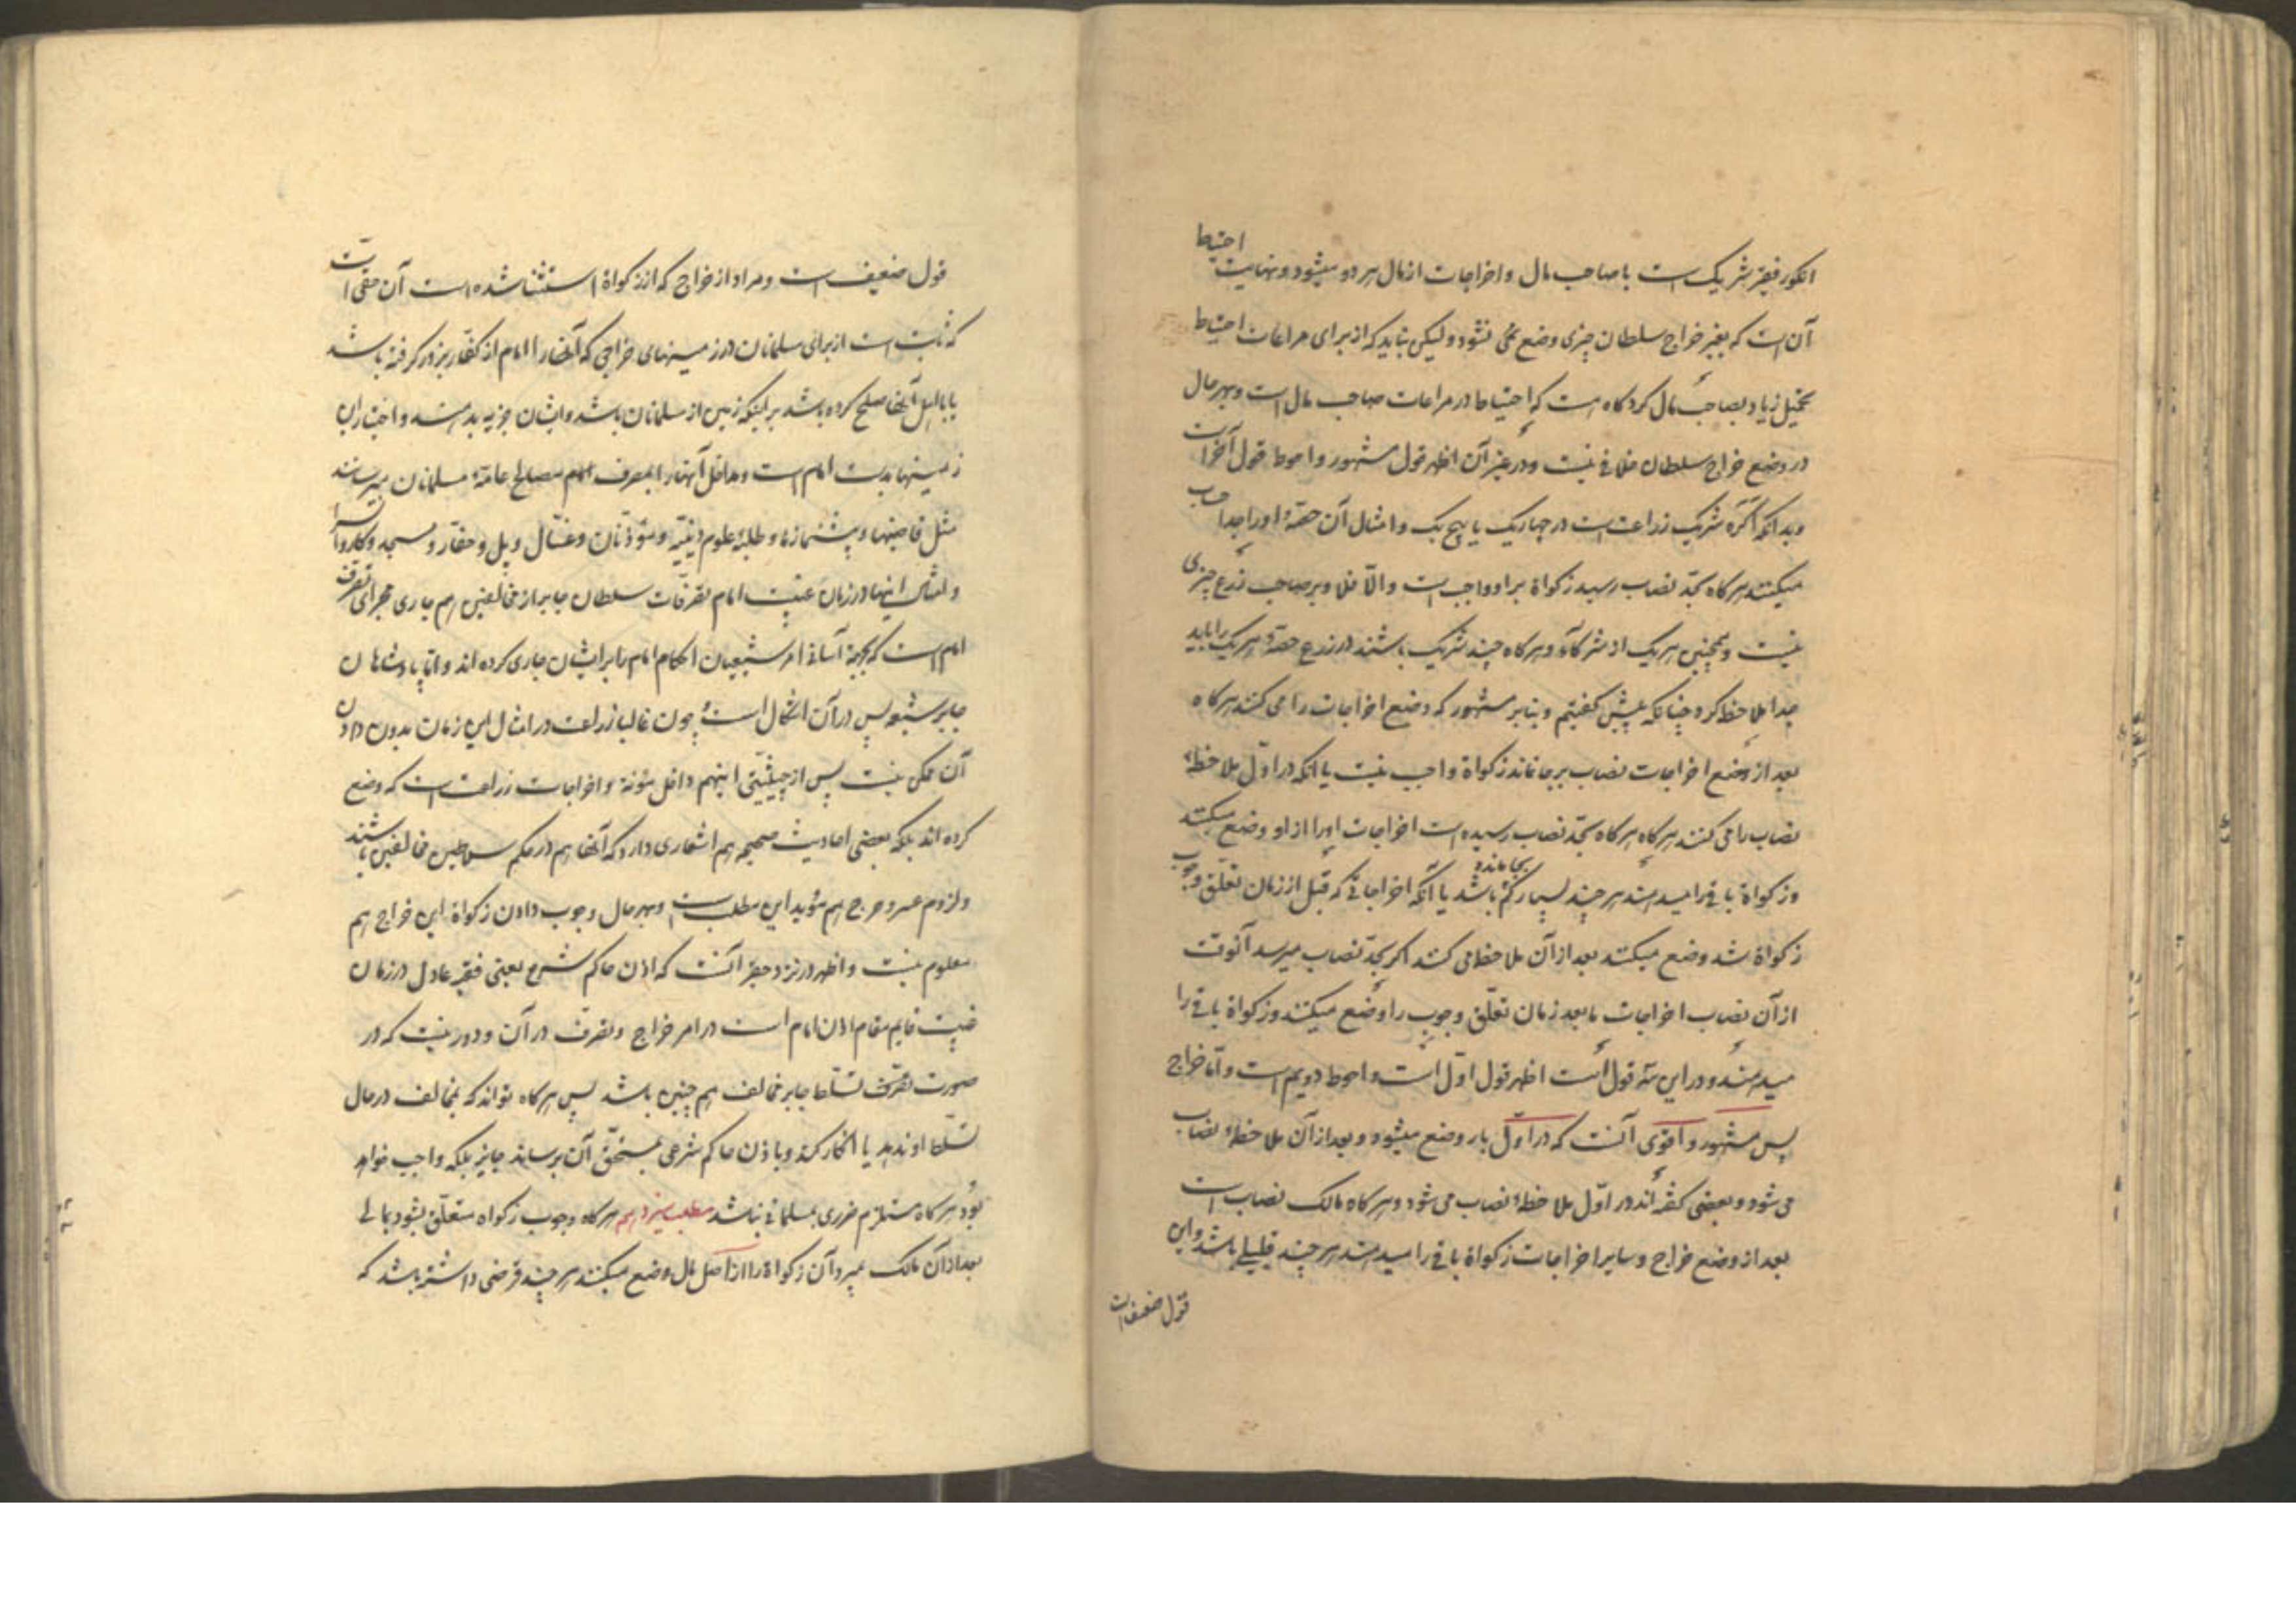 انکور فقیر شریک است با صاحب مال و اخراجات از مال هر دو میشود و نهایت احتیاط
آن است که بغیر خراج سلطان چیزی وضع نمی نشود و لیکن نباید که از برای مراعات احتیاط
تحمیل زیاد بصاحب مال کرد کاه هست که احتیاط در مراعات صاحب مال است و بهر حال
در وضع خراج سلطان خلافی نیست و در غیر آن اظهر قول مشهور و احوط قول آخر است
و بدانکه اکره شریک زراعت است در چهار یک یا پنج یک و امثال آن حصهٔ او را جدا حساب
میکنند هر کاه بحدّ نصاب رسید زکواة بر او واجب است و الّا فلا و بر صاحب زرع چیزی
نیست و همچنین هر یک از شرکاء و هر کاه چند شریک باشند در زرع حصهٔ هر یک را باید
جدا ملاحظه کرد چنانکه پیش کفتیم و بنابر مشهور که وضع اخراجات را می کنند هر کاه
بعد از وضع اخراجات نصاب بر جا نماند زکواة واجب نیست یا انکه در اوّل ملاحظهٔ
نصاب را می کنند هر کاه هر کاه بحدّ نصاب رسیده است اخراجات او را از او وضع میکنند
و زکواة باقی را میدهند هر چند بسیار کم بجا مانده باشد یا آنکه اخراجاتی که قبل از زمان تعلّق وجوب
زکواة شد وضع میکنند بعد از آن ملاحظه می کنند اکر بحدّ نصاب میرسد آنوقت
از آن نصاب اخراجات ما بعد زمان تعلّق وجوب را وضع میکنند و زکواة باقی را
میدهند و در این سه قول است اظهر قول اوّل است و احوط دویم است و امّا خراج
پس مشهور و اقوی آنست که در اوّل بار وضع میشود و بعد از آن ملاحظهٔ نصاب
می شود و بعضی کفته اند در اوّل ملاحظهٔ نصاب می شود و هر کاه مالک نصاب است
بعد از وضع خراج و سایر اخراجات زکواة باقی را میدهند هر چند قلیلی باشد و این
قول ضعیف است
قول ضعیف است و مراد از خراج که از زکواة استثنا شده است آن حقی است
که ثابت است از برای مسلمانان در زمینهای خراجی که آنها را امام از کفّار بزور کرفته باشد
یا با اهل آنها صلح کرده باشد بر اینکه زمین از مسلمانان باشد و ایشان جزیه بدهند و اختیار این
زمینها بدست امام است و مداخل آنها را بمصرف امام مصالح عامّهٔ مسلمانان میرساند
مثل قاضیها و پیشنمازها و طلبهٔ علوم دینیّه و مؤذّنان و غسّال و پل و حفّار و مسجد و کاروانسرا
و امثال اینها در زمان غیبت امام تصرّفات سلطان جابر از مخالفین هم جاری مجرای تصرف
امام است که بجهة آسانی امر شیعیان احکام امام را بر ایشان جاری کرده اند و امّا پادشاهان
جابر شیعه پس در آن اشکال است و چون غالبا زراعت در امثال این زمان بدون دادن
آن ممکن نیست پس از حیثیّتی اینهم داخل مؤنة و اخراجات زراعت است که وضع
کرده اند بلکه بعضی احادیث صحیحه هم اشعاری دارد که آنها هم در حکم سلاطین مخالفین باشند
و لزوم عسر و حرج هم مؤید این مطلب است و بهر حال وجوب دادن زکواة این خراج هم
معلوم نیست و اظهر در نزد حقیر آنست که اذن حاکم شرع یعنی فقیه عادل در زمان
غیبت قایم مقام اذن امام است در امر خراج و تصرّف در آن و دور نیست که در
صورت تصرّف تسلّط جابر مخالف هم چنین باشد پس هر کاه تواند که بمخالف در حال
تسلّط او ندهد یا انکار کند و باذن حاکم شرعی بمستحقّ آن برساند جایز بلکه واجب خواهد
بود هر کاه مستلزم ضرری بمسلمانی نباشد مطلب سیزدهم هر کاه وجوب زکواة متعلّق بشود بمالی
بعد از آن مالک بمیرد آن زکواة را از اصل مال وضع میکنند هر چند قرضی داشته باشد که